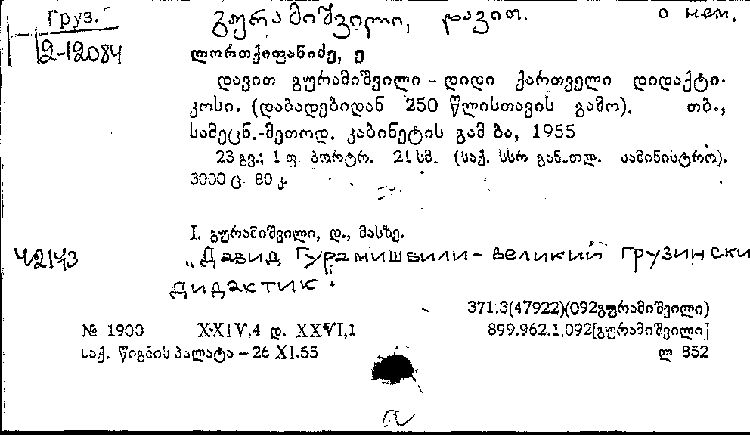 Груз. გურამიშვილი, დავით. о нем.
2-12084
ლორთქიფანიძე, ე
დავით გურამიშვილი – დიდი ქართველი დიდაქტი-
კოსი. (დაბადებიდან 250 წლისთავის გამო). თბ.,
სამეცნ.-მეთოდ. კაბინეტის გამ ბა, 1955
23 გვ.; 1 ფ. პორტრ. 21 სმ. (საქ. სსრ გან-თლ. სამინისტრო).
3000 ც. 80 კ.
I. გურამიშვილი, დ., მასზე.
42143 „Давид Гурамишвили – великий грузински
дидактик.
371.3(47922)(092გურამიშვილი)
№ 1900 XXIV,4 დ. XXVI,1 899.962.1.092[გურამიშვილი]
საქ. წიგნის პალატა – 26 XI.55 ლ 852